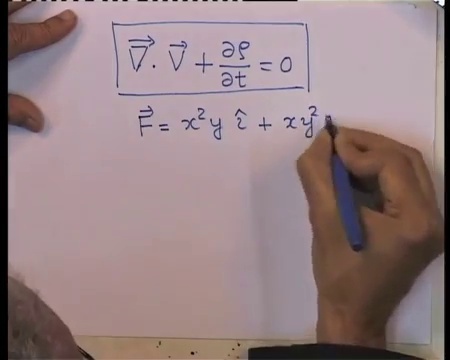 ∇⃗ · V⃗ + ∂ρ/∂t = 0
F⃗ = x²y î + xy²